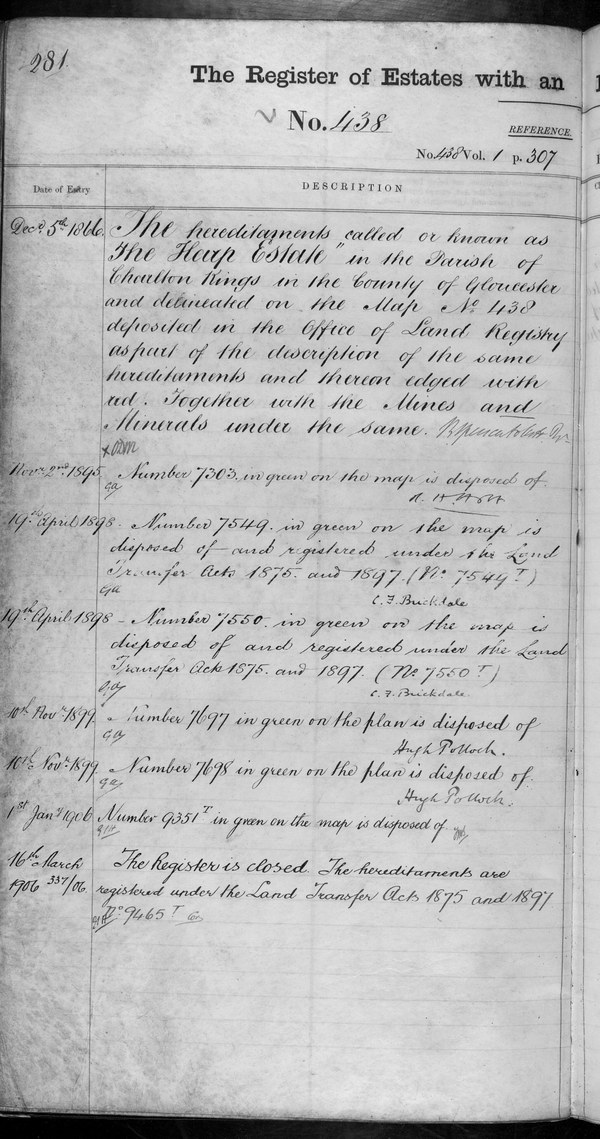 281.
The Register of Estates with an
No. 438
REFERENCE.
No. 438 Vol. 1 p. 307
Date of Entry
DESCRIPTION
Decr. 5th 1866. The hereditaments called or known as
The Hearp Estate" in the Parish of
Charlton Kings in the County of Gloucester
and delineated on the Map No. 438
deposited in the Office of Land Registry
as part of the description of the same
hereditaments and thereon edged with
red. Together with the Mines and
Minerals under the same.
Novr. 2nd 1895. Number 7303. in green on the map is disposed of
19th April 1898 - Number 7549. in green on the map is
disposed of and registered under the Land
Transfer Acts 1875. and 1897. (No. 7549 T)
C. F. Brickdale
19th April 1898 - Number 7550. in green on the map is
disposed of and registered under the Land
Transfer Acts 1875. and 1897. (No. 7550 T)
C. F. Brickdale.
10th Novr. 1899. Number 7697 in green on the plan is disposed of
Hugh Pollock.
10th Novr. 1899. Number 7698 in green on the plan is disposed of.
Hugh Pollock.
1st Jany 1906 Number 9351 T in green on the map is disposed of.
16th March The Register is closed. The hereditaments are
1906 337/06. registered under the Land Transfer Acts 1875 and 1897
No. 9465 T